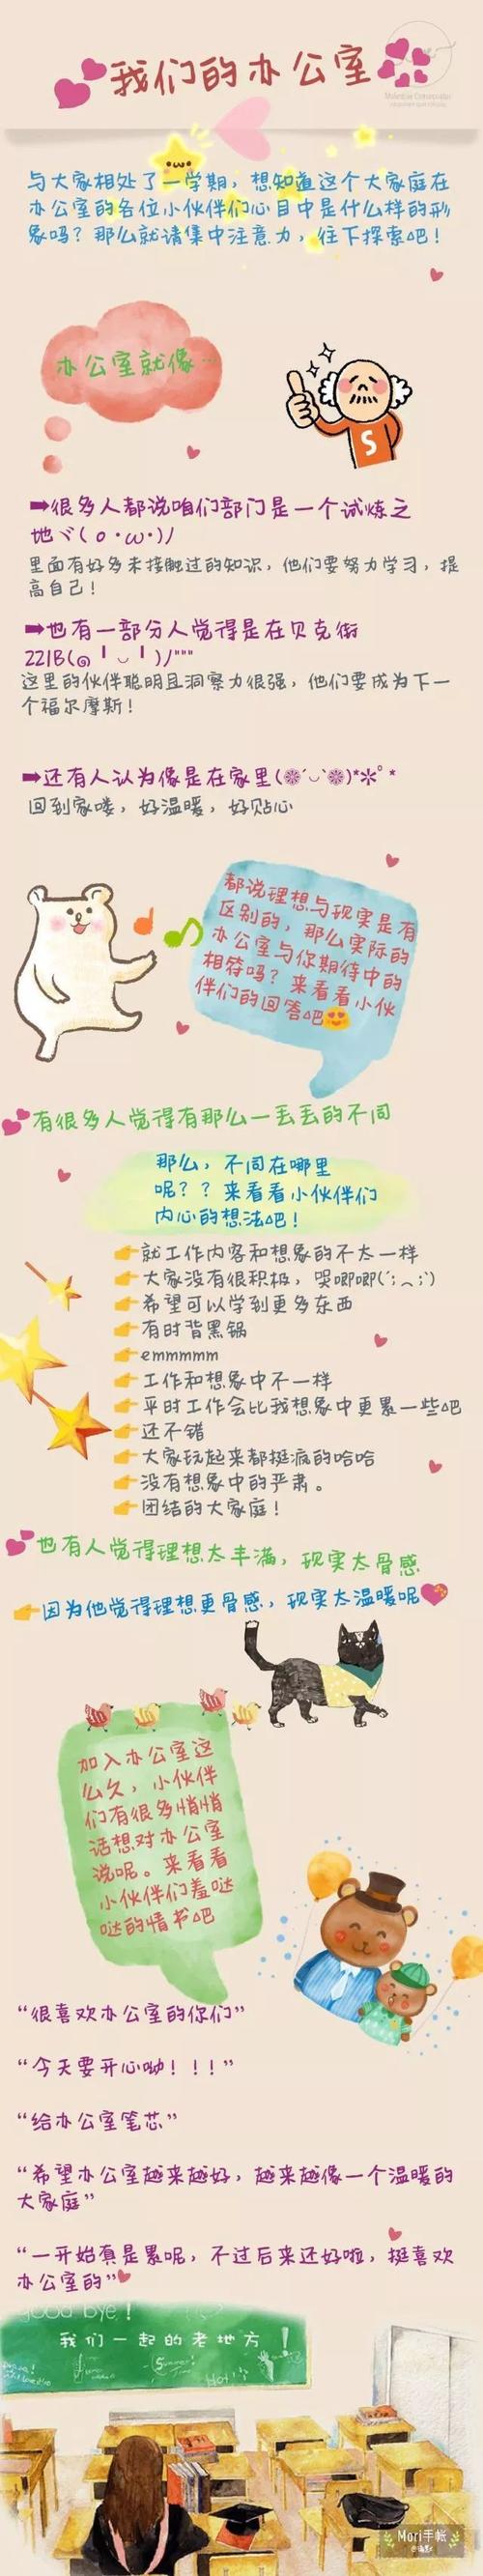 我们的办公室
与大家相处了一学期，想知道这个大家庭在
办公室的各位小伙伴们心目中是什么样的形
象吗？那么就请集中注意力，往下探索吧！
办公室就像…
S
➡很多人都说咱们部门是一个试炼之
地ヾ(o･ω･)ﾉ
里面有好多未接触过的知识，他们要努力学习，提
高自己！
➡也有一部分人觉得是在贝克街
221B(๑╹◡╹)ﾉ"""
这里的伙伴聪明且洞察力很强，他们要成为下一
个福尔摩斯！
➡还有人认为像是在家里(❁´◡`❁)*✲ﾟ*
回到家喽，好温暖，好贴心
都说理想与现实是有
区别的，那么实际的
办公室与你期待中的
相符吗？来看看小伙
伴们的回答吧😍
💕有很多人觉得有那么一丢丢的不同
那么，不同在哪里
呢？？来看看小伙伴们
内心的想法吧！
👉就工作内容和想象的不太一样
👉大家没有很积极，哭唧唧(´；︵；`)
👉希望可以学到更多东西
👉有时背黑锅
👉emmmmm
👉工作和想象中不一样
👉平时工作会比我想象中更累一些吧
👉还不错
👉大家玩起来都挺疯的哈哈
👉没有想象中的严肃。
👉团结的大家庭！
💕也有人觉得理想太丰满，现实太骨感
👉因为他觉得理想更骨感，现实太温暖呢💖
加入办公室这
么久，小伙伴
们有很多悄悄
话想对办公室
说呢。来看看
小伙伴们羞哒
哒的情书吧
“很喜欢办公室的你们”
“今天要开心呦！！！”
“给办公室笔芯”
“希望办公室越来越好，越来越像一个温暖的
大家庭”
“一开始真是累呢，不过后来还好啦，挺喜欢
办公室的”
good bye!
我们一起的老地方！
Hot!!
Mori手帐